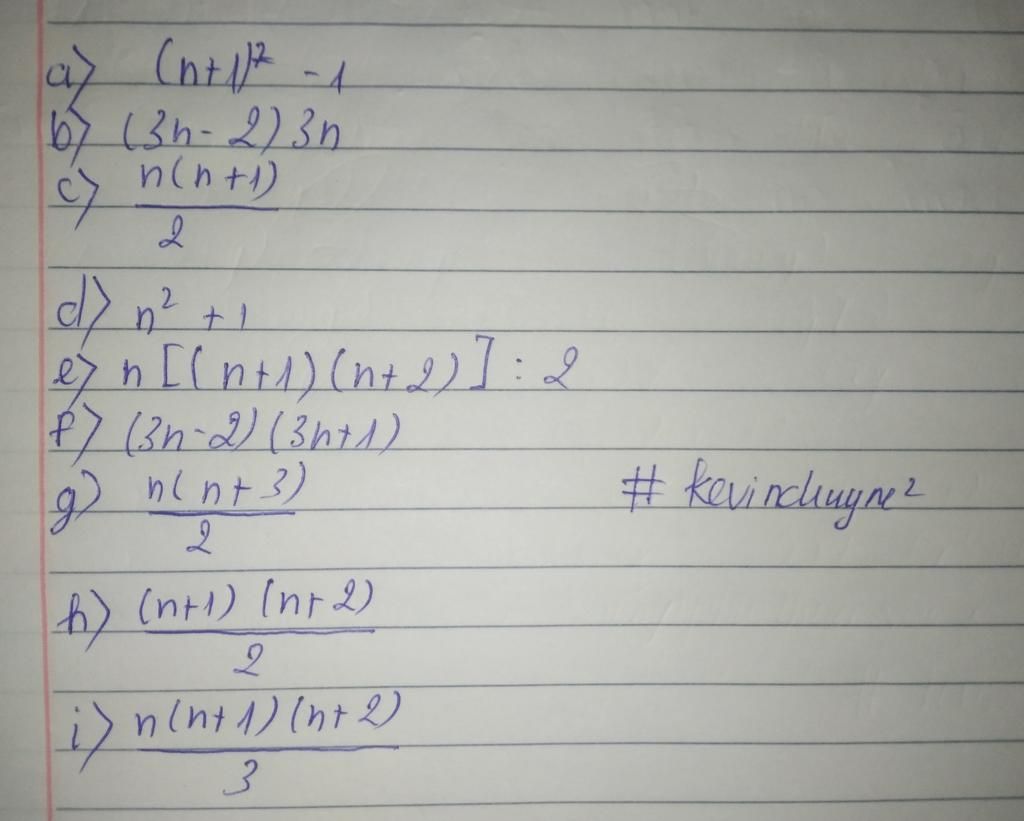 a) (n+1)² - 1
b) (3n - 2) 3n
c) n(n+1)
2
d) n² + 1
e) n [(n+1)(n+2)] : 2
f) (3n-2)(3n+1)
g) n(n+3)
2
#
h) (n+1) (n+2)
2
i) n(n+1)(n+2)
3